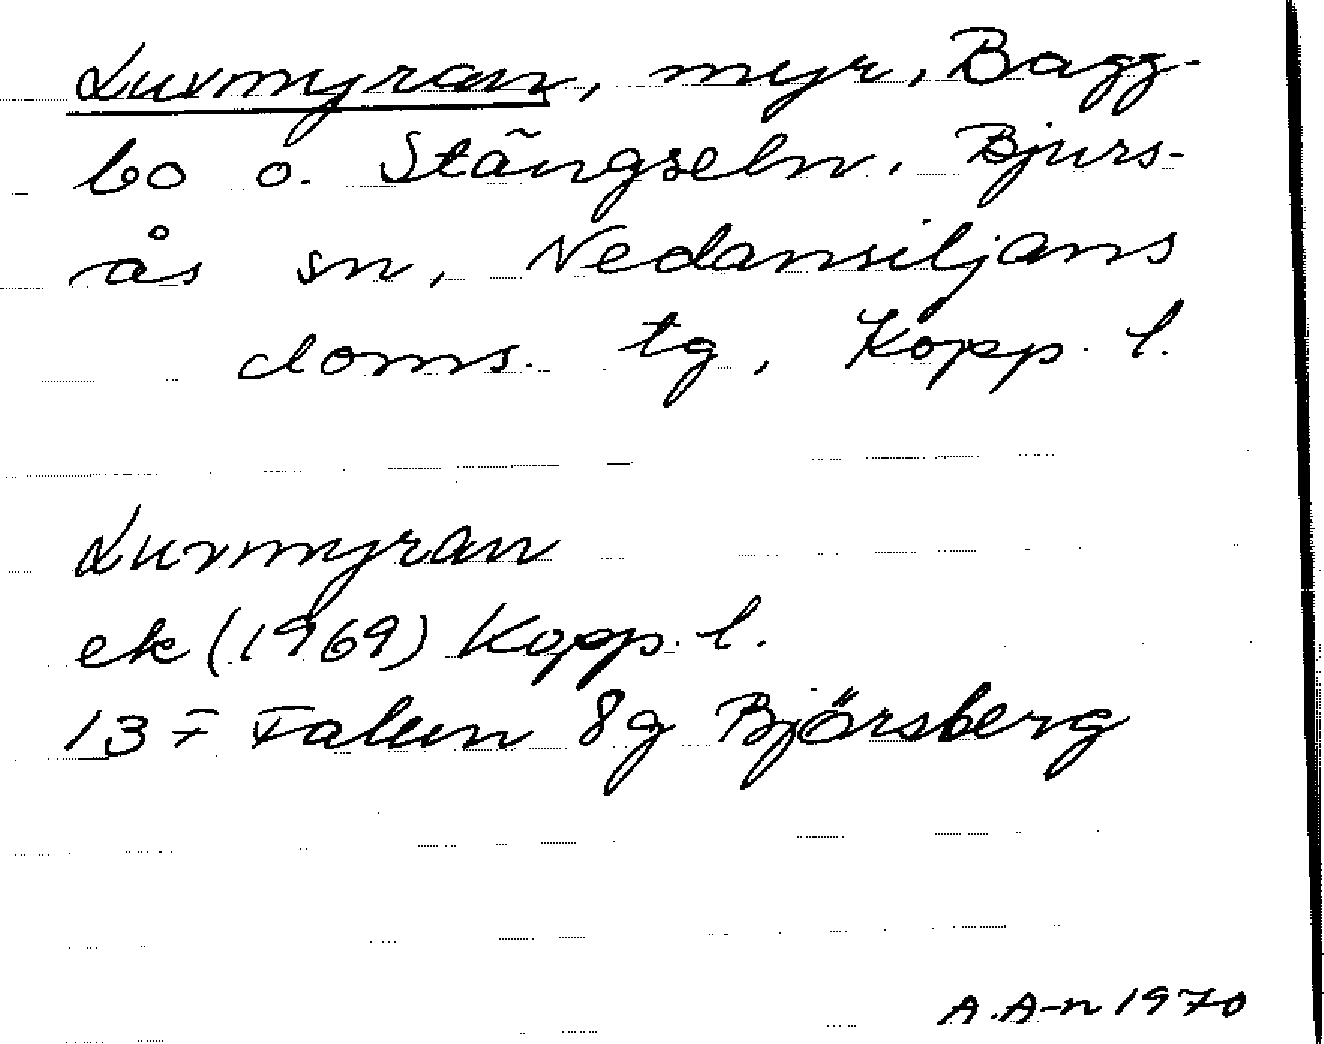 Luvmyran, myr, Bagg-
bo o. Stängseln, Bjurs-
ås sn, Nedansiljans
doms. tg, Kopp. l.
Luvmyran
ek (1969) Kopp. l.
13 F Falun 8g Björsberg
A. A-n 1970